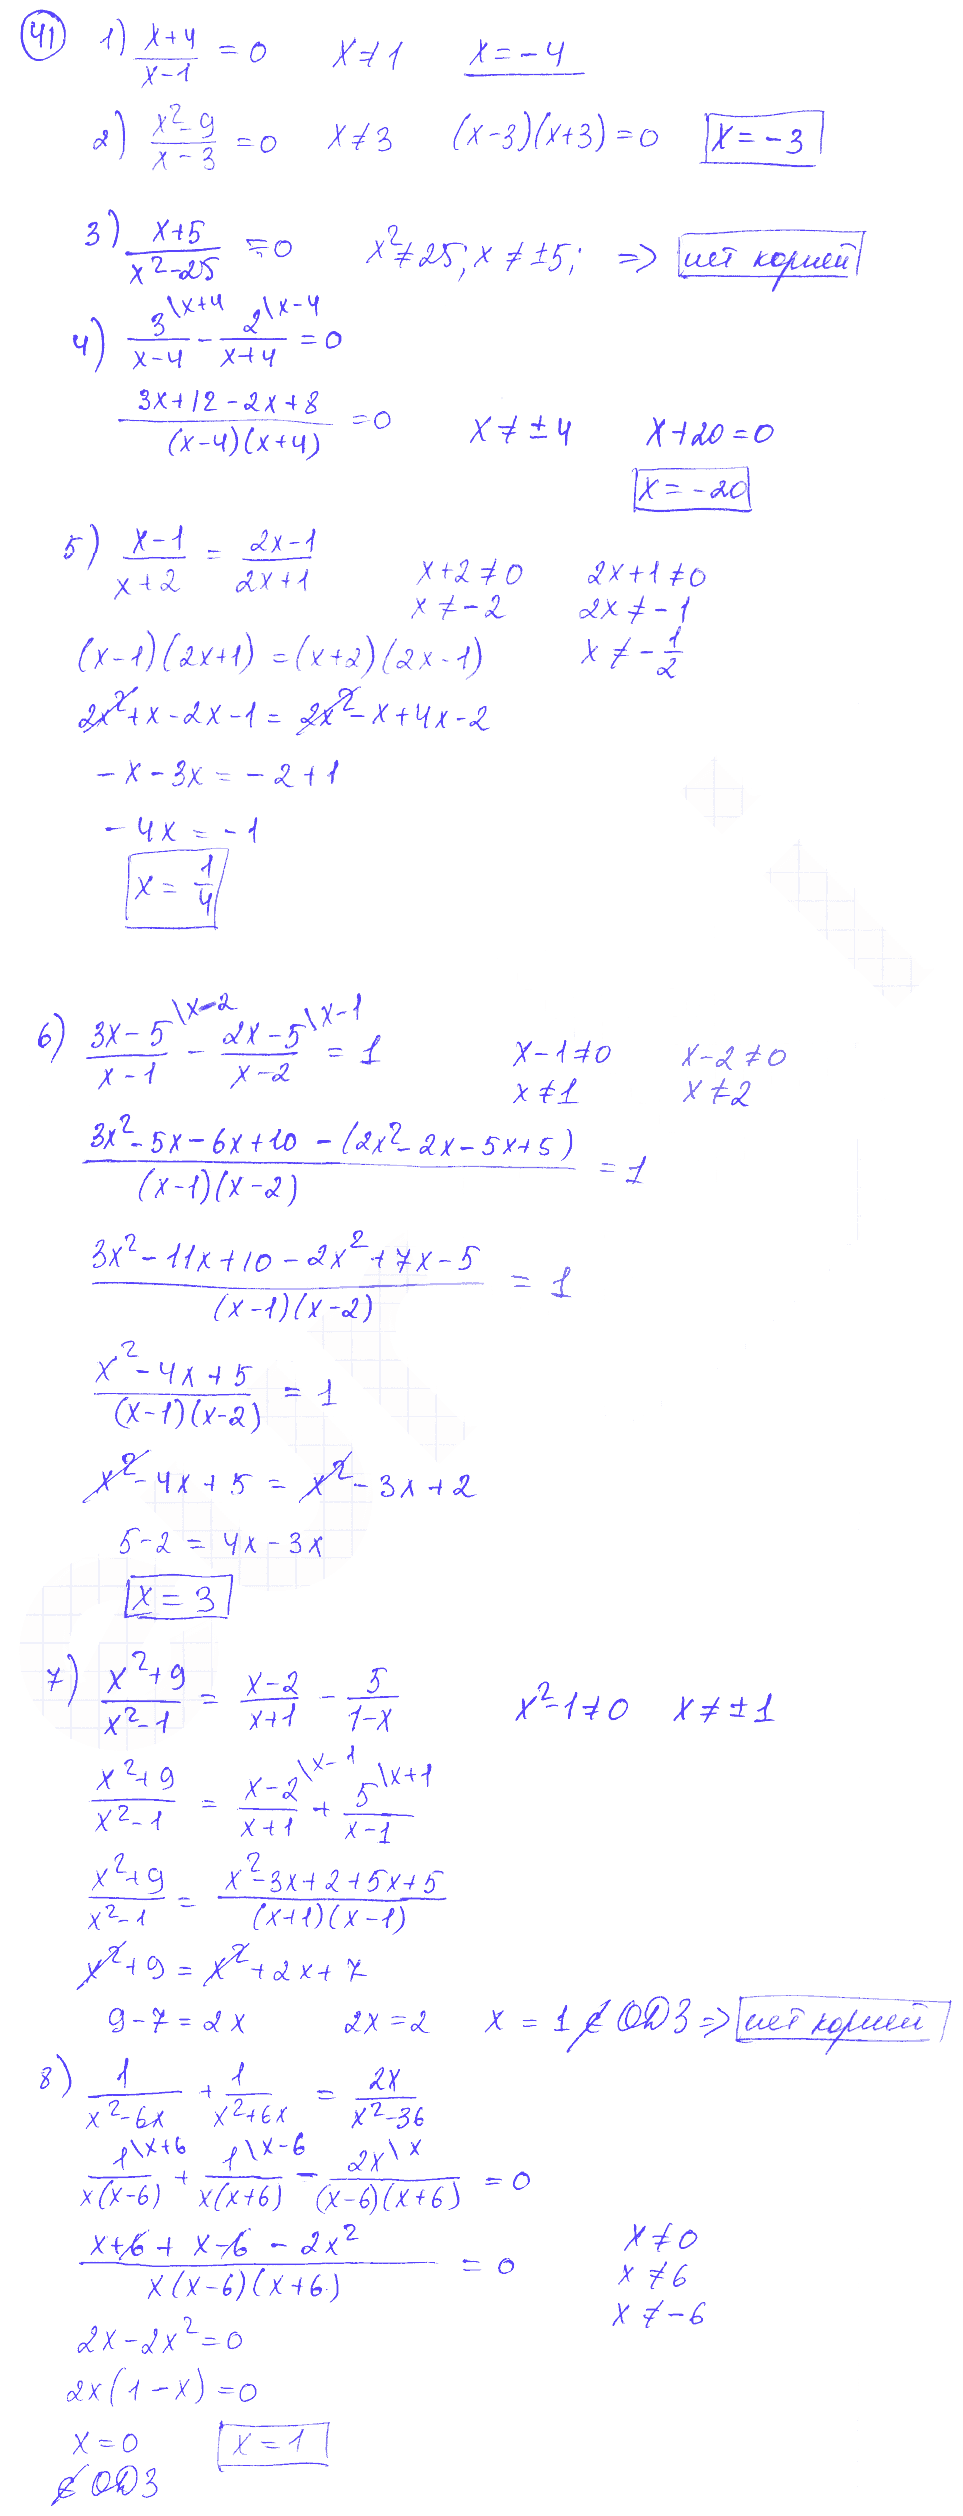 41 1) (x+4)/(x-1) = 0 x ≠ 1 x = -4
2) (x²-9)/(x-3) = 0 x ≠ 3 (x-3)(x+3) = 0 x = -3
3) (x+5)/(x²-25) = 0 x² ≠ 25; x ≠ ±5; => нет корней
4) 3\x+4/(x-4) - 2\x-4/(x+4) = 0
(3x+12-2x+8)/((x-4)(x+4)) = 0 x ≠ ±4 x+20=0
x = -20
5) (x-1)/(x+2) = (2x-1)/(2x+1) x+2 ≠ 0 2x+1 ≠ 0
x ≠ -2 2x ≠ -1
(x-1)(2x+1) = (x+2)(2x-1) x ≠ -1/2
2x²+x-2x-1 = 2x²-x+4x-2
-x-3x = -2+1
-4x = -1
x = 1/4
6) (3x-5)\x-2/(x-1) - (2x-5)\x-1/(x-2) = 1 x-1 ≠ 0 x-2 ≠ 0
x ≠ 1 x ≠ 2
(3x²-5x-6x+10-(2x²-2x-5x+5))/((x-1)(x-2)) = 1
(3x²-11x+10-2x²+7x-5)/((x-1)(x-2)) = 1
(x²-4x+5)/((x-1)(x-2)) = 1
x²-4x+5 = x²-3x+2
5-2 = 4x-3x
x = 3
7) (x²+9)/(x²-1) = (x-2)/(x+1) - 5/(1-x) x²-1 ≠ 0 x ≠ ±1
(x²+9)/(x²-1) = (x-2)\x-1/(x+1) + 5\x+1/(x-1)
(x²+9)/(x²-1) = (x²-3x+2+5x+5)/((x+1)(x-1))
x²+9 = x²+2x+7
9-7 = 2x 2x = 2 x = 1 ∉ ОДЗ => нет корней
8) 1/(x²-6x) + 1/(x²+6x) = 2x/(x²-36)
1\x+6/(x(x-6)) + 1\x-6/(x(x+6)) - 2x\x/((x-6)(x+6)) = 0
(x+6+x-6-2x²)/(x(x-6)(x+6)) = 0 x ≠ 0
x ≠ 6
x ≠ -6
2x-2x² = 0
2x(1-x) = 0
x = 0 x = 1
∉ ОДЗ